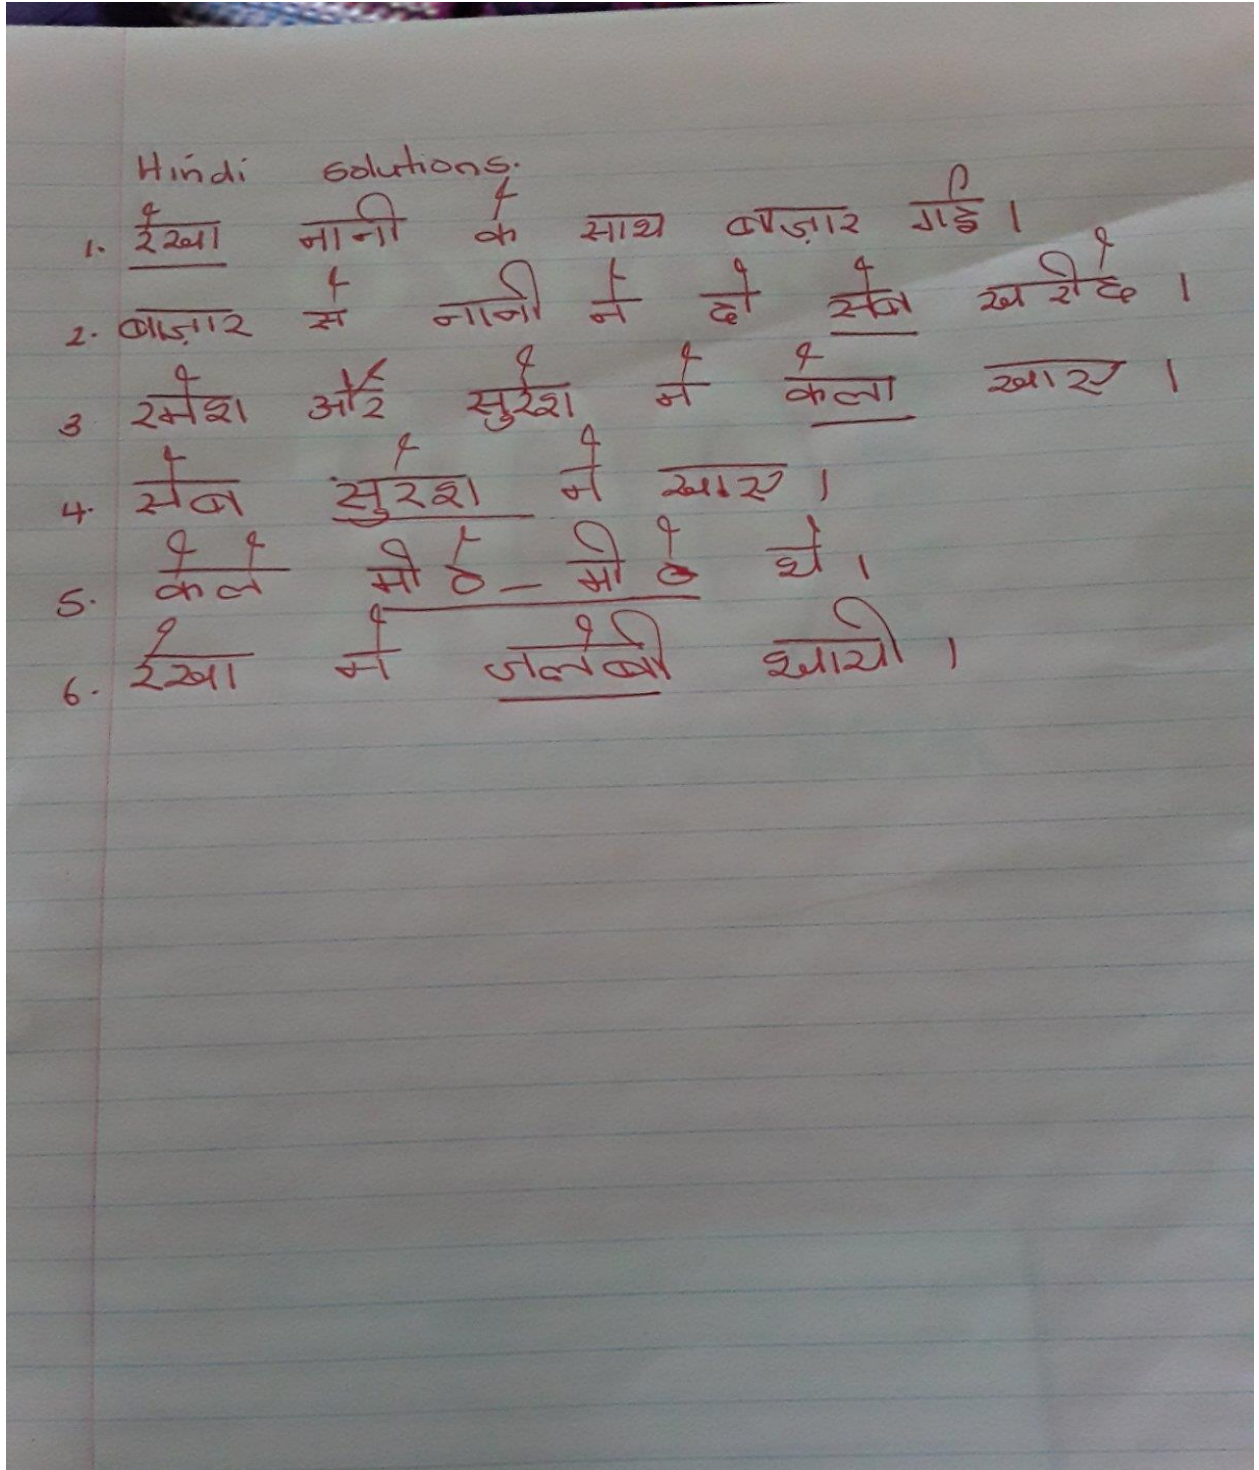 Hindi solutions.
1. रेखा नानी के साथ बाज़ार गई।
2. बाज़ार से नानी ने दो सेब खरीदे।
3 रमेश और सुरेश ने केला खाए।
4. सेब सुरेश ने खाए।
5. केले मीठे-मीठे थे।
6. रेखा ने जलेबी खायी।